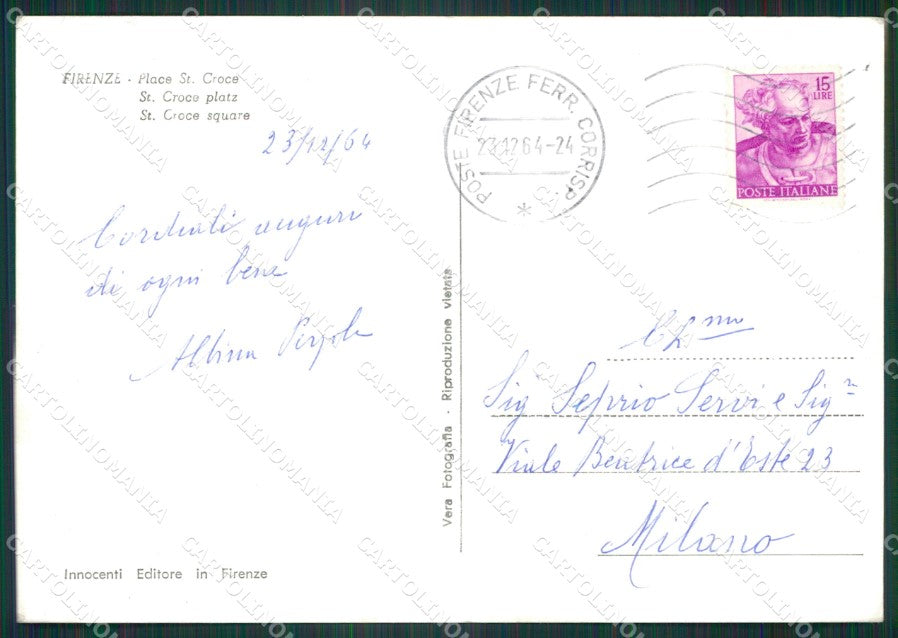 FIRENZE - Place St. Croce
St. Croce platz
St. Croce square
23/12/64
Cordiali auguri
di ogni bene
Albina
Vera Fotografia - Riproduzione vietata
Innocenti Editore in Firenze
POSTE FIRENZE FERR. CORRISP.
23.12.64-24
15
LIRE
POSTE ITALIANE
Sig Seprio Servi e Sig.ra
Viale Beatrice d'Este 23
Milano
CARTOLINOMANIA